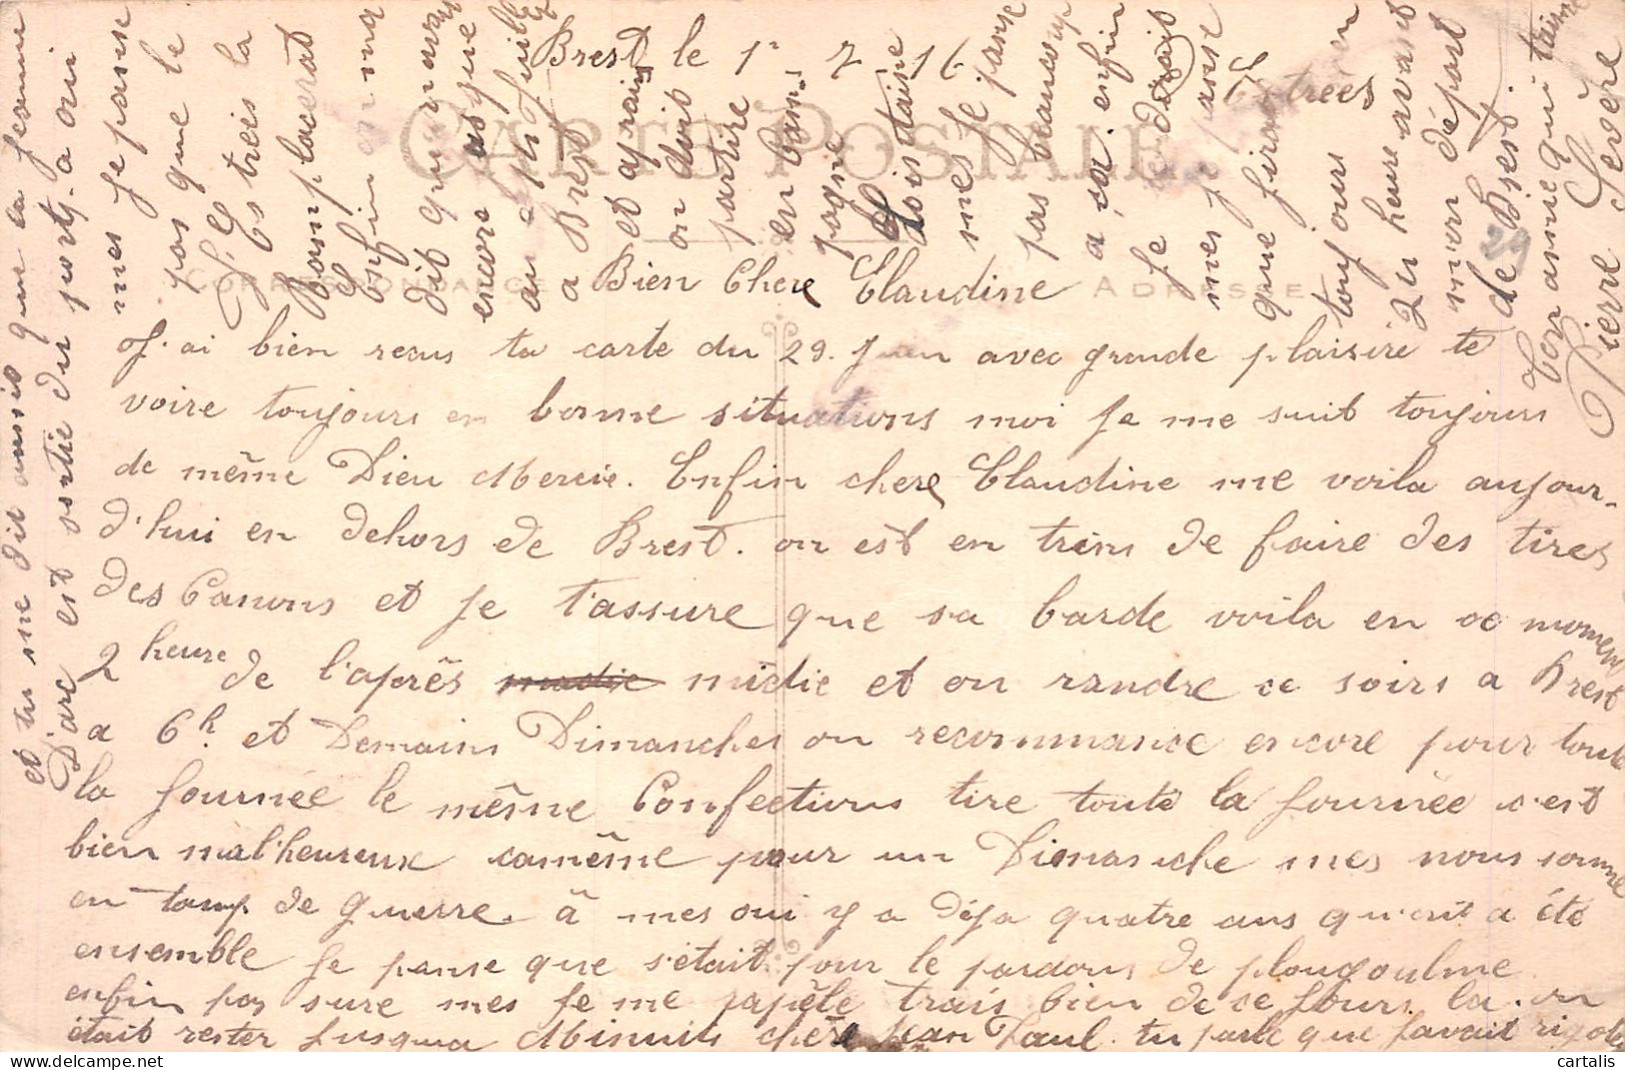 Brest le 1r - 7 - 16
CARTE POSTALE
CORRESPONDANCE
ADRESSE
Bien Chere Claudine
J'ai bien recus ta carte du 29. Juin avec grande plaisire te
voire toujours en bonne situations moi Je me suit toujours
de même Dieu Mercie. Enfin chere Claudine me voila aujour-
d'hui en dehors de Brest. on est en trein de faire des tires
des Canons et Je t'assure que sa barde voila en ce momen
2 heure de l'aprês midie et on randre ce soirs a Brest
a 6h. et Demains Dimanches on recommance encore pour toute
la Journée le même Confections tire toute la Journée c'est
bien mal'heureux camême pour un Dimanche mes nous somme
en tamp de guerre. â mes oui y a déja quatre ans qu'ont a été
ensemble Je panse que s'était pour le pardons de plougoulme
enfin pas sure mes Je me rapêle trais bien de ce Jours la. on
était rester Jusqua Minuits chére Jean Paul. tu parle que J'avait rigoler
et tu me dit aussis que la femme
Darc est sortie du ports. a oui
mes Je panse
pas que le
trois la
Ramplacerat
enfin on ma
dit qu'on vas
encore as que
au 14 Juillet
a Brest
et aprais
on doit
partire
en Cam-
pagne
Loistaine
mes Je panse
pas beaucoup
a sa. enfin
Je dirait
mes J panse
que J'irai
toujours en
24 heure avant
mon départ
de Brest.
29
Ton amie qui t'aime
Pierre Sévère
cartalis